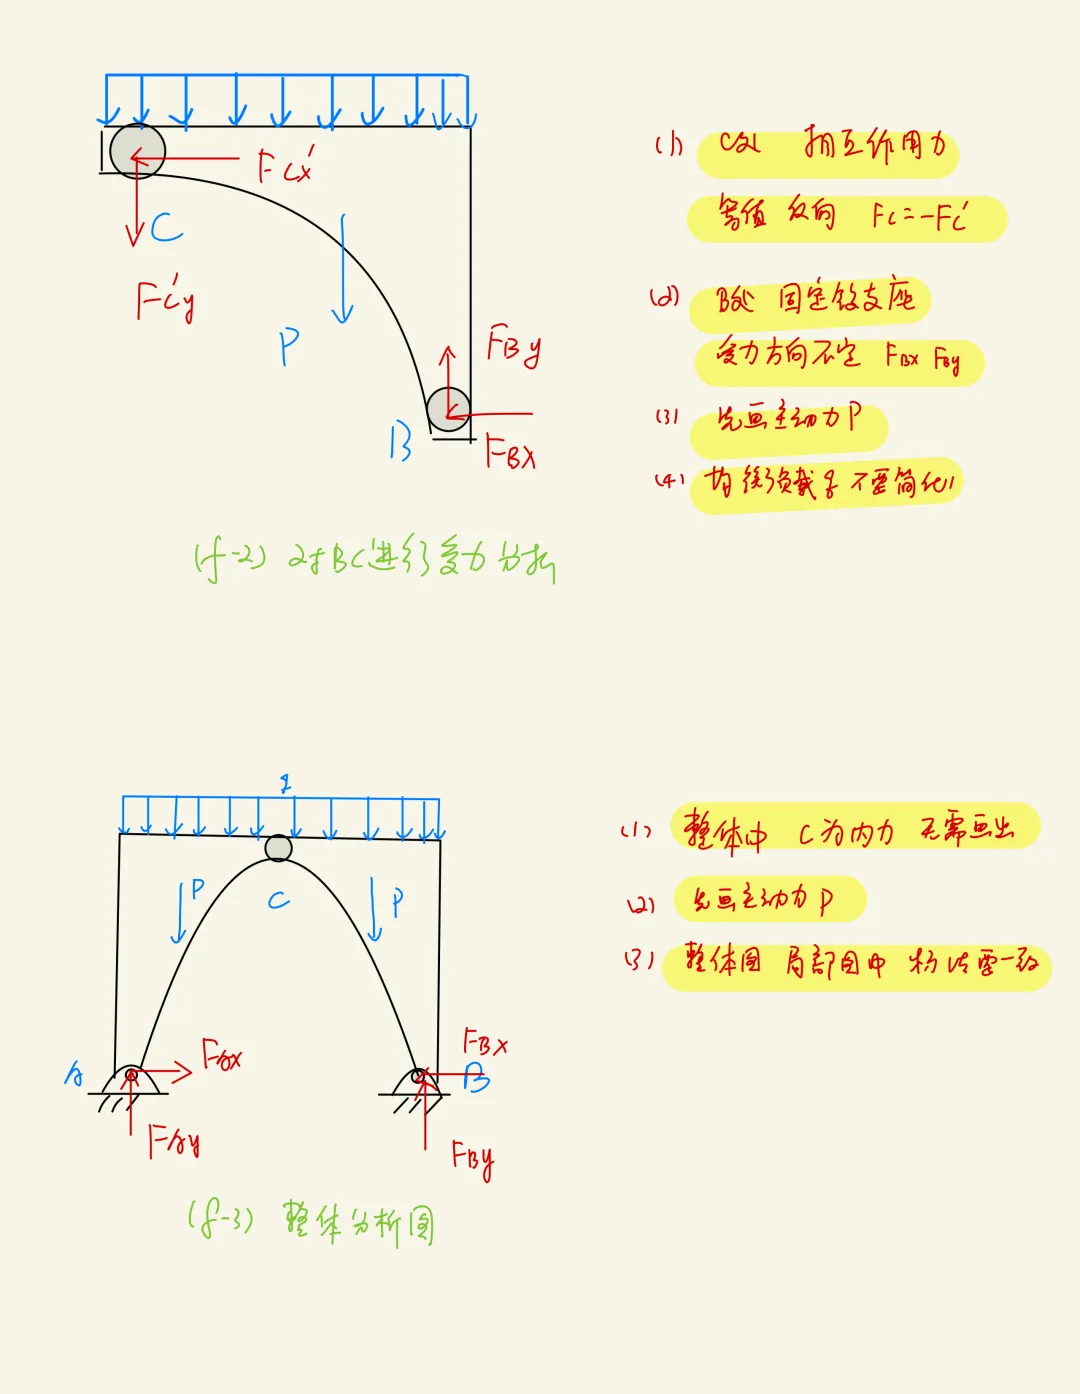 FCx′
C
F′Cy
P
FBy
B
FBx
(f-2) 对BC进行受力分析
(1) C处 相互作用力
等值 反向 Fc=-Fc′
(2) B处 固定铰支座
受力方向不定 FBx FBy
(3) 先画主动力P
(4) 均 负载 不要简化
q
P
C
P
A
FAx
FAy
FBx
B
FBy
(f-3) 整体分析图
(1) 整体中 C为内力 无需画出
(2) 先画主动力P
(3) 整体图 局部图中 需一致